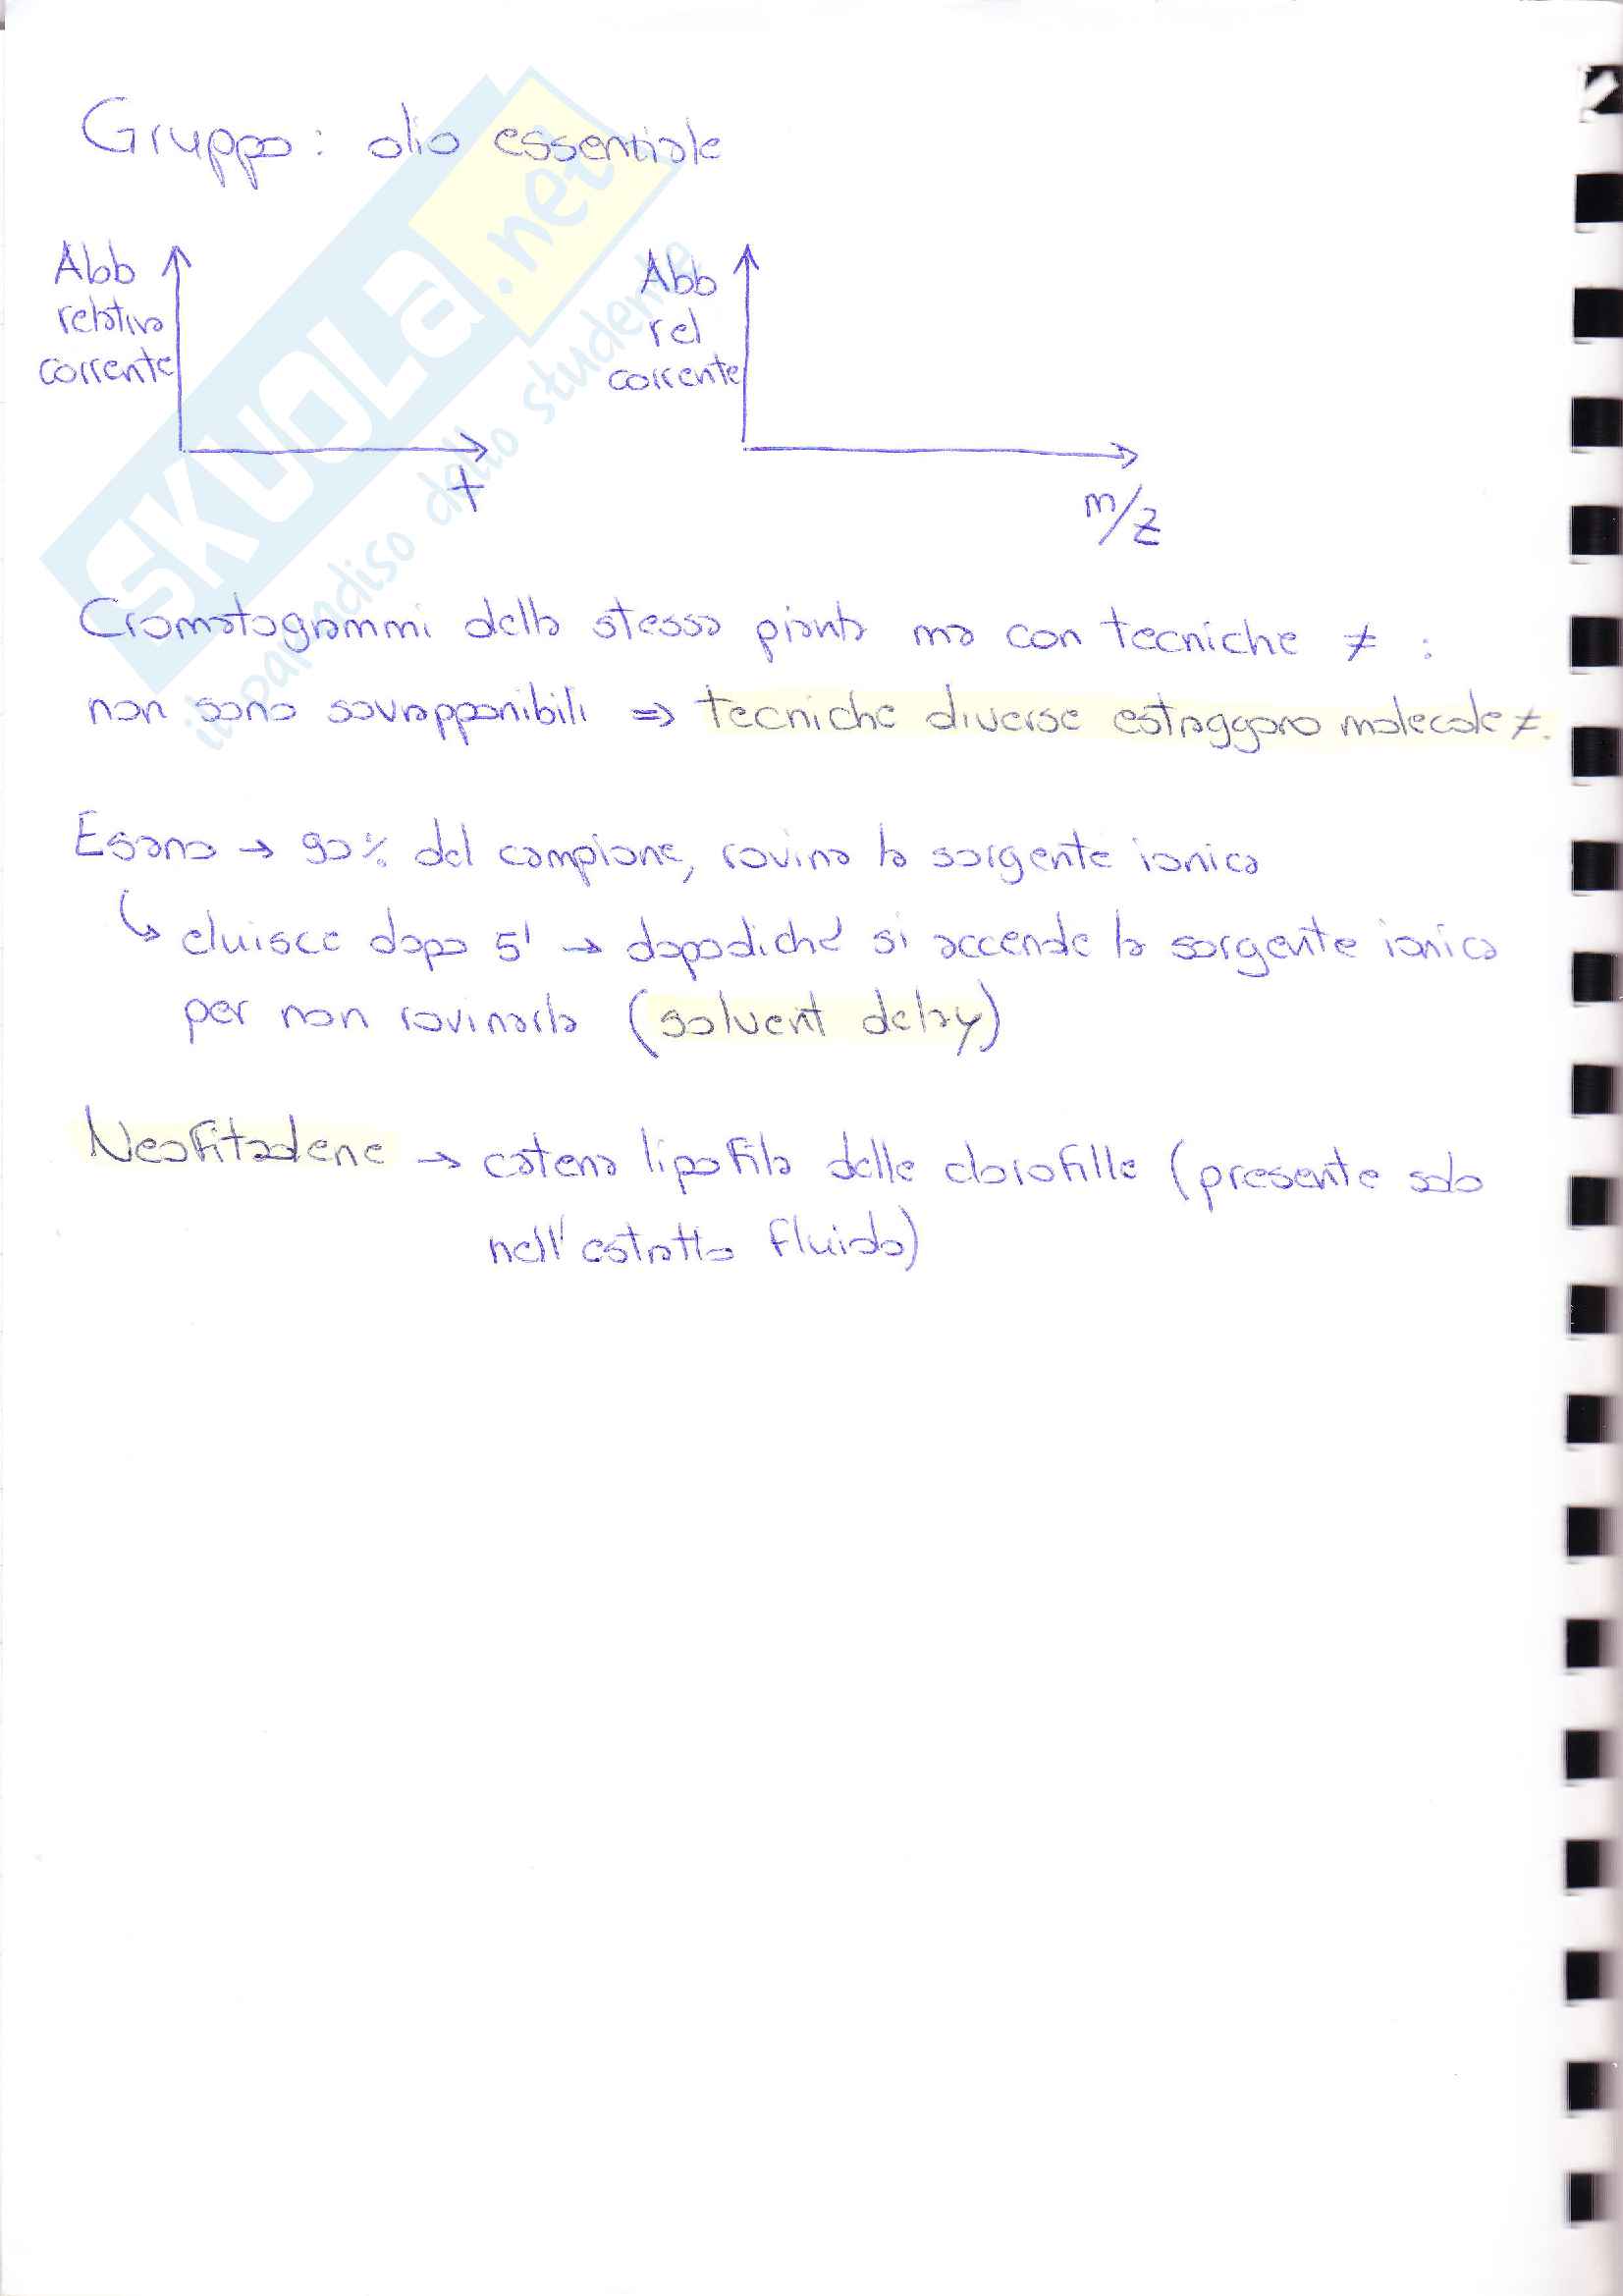 Gruppo: olio essenziale
Abb
relativa
corrente
t
Abb
rel
corrente
m/z
Cromatogrammi della stessa pianta ma con tecniche ≠ :
non sono sovrapponibili => tecniche diverse estraggono molecole ≠.
Esano → 90% del campione, rovina la sorgente ionica
↳ eluisce dopo 5' → dopodiché si accende la sorgente ionica
per non rovinarla (solvent delay)
Neofitadene → catena lipofila delle clorofille (presente solo
nell'estratto fluido)
SKUOLA.net
il paradiso dello studente